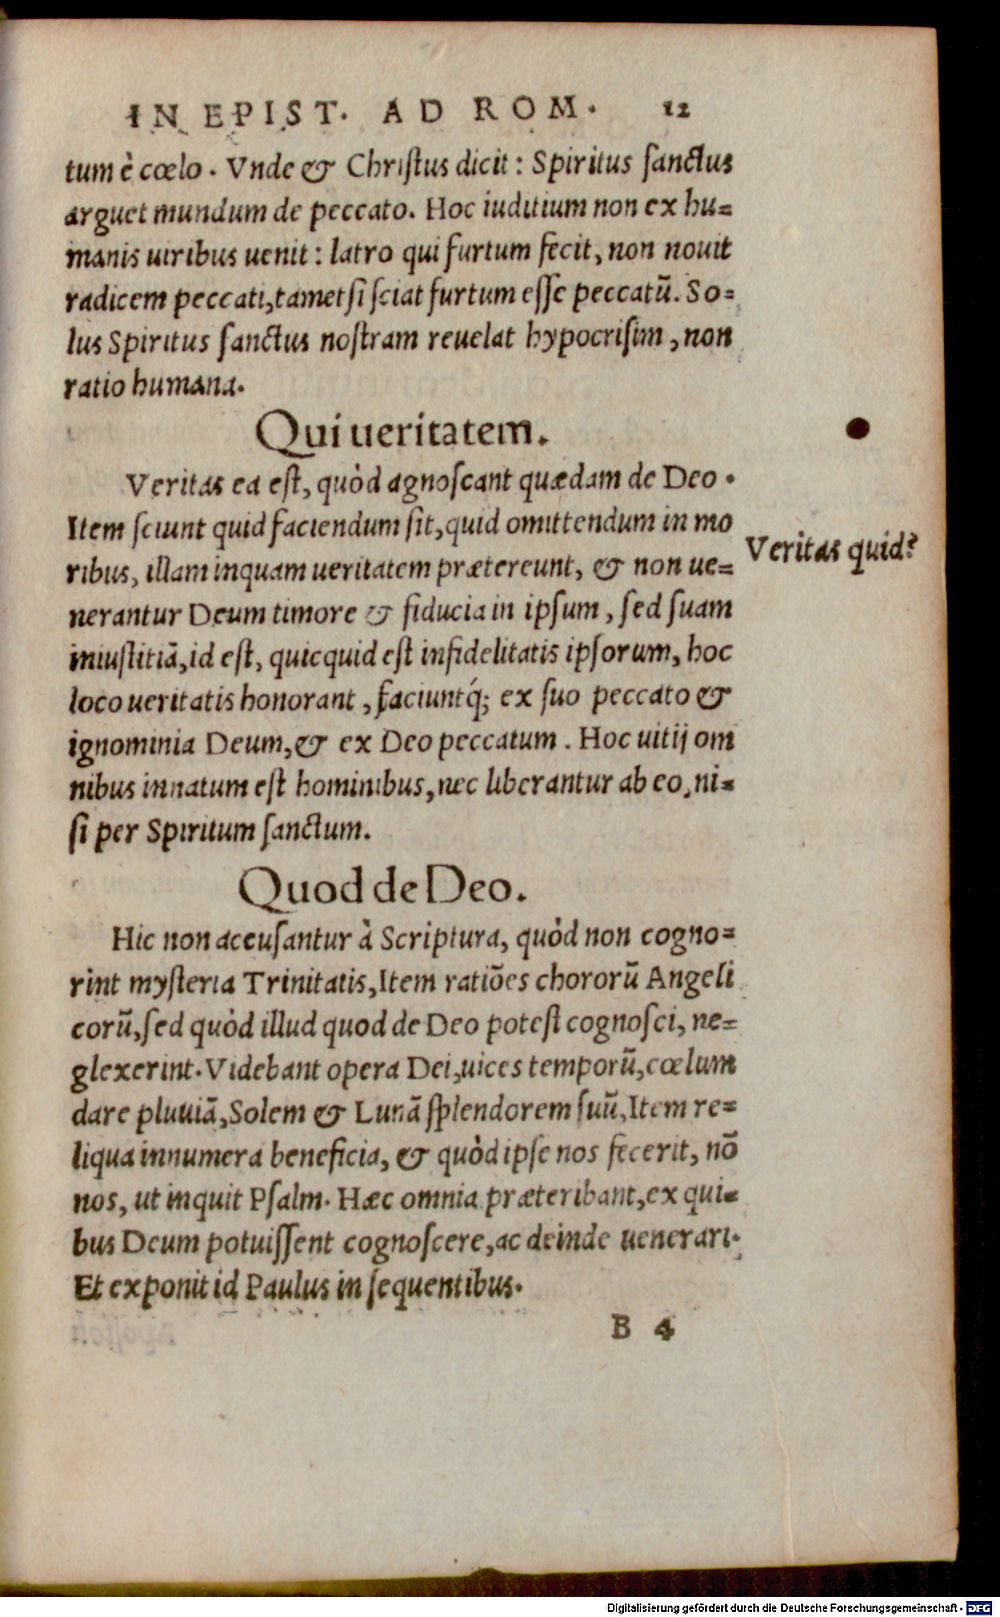 IN EPIST. AD ROM. 12
tum è cœlo. Vnde & Christus dicit: Spiritus sanctus
arguet mundum de peccato. Hoc iuditium non ex hu=
manis uiribus uenit: latro qui furtum fecit, non nouit
radicem peccati, tametsi sciat furtum esse peccatū. So=
lus Spiritus sanctus nostram reuelat hypocrisim, non
ratio humana.
Qui ueritatem.
Veritas ea est, quòd agnoscant quædam de Deo.
Item sciunt quid faciendum sit, quid omittendum in mo
ribus, illam inquam ueritatem prætereunt, & non ue=
nerantur Deum timore & fiducia in ipsum, sed suam
iniustitiā, id est, quicquid est infidelitatis ipsorum, hoc
loco ueritatis honorant, faciuntq́; ex suo peccato &
ignominia Deum, & ex Deo peccatum. Hoc uitij om
nibus innatum est hominibus, nec liberantur ab eo, ni=
si per Spiritum sanctum.
Veritas quid?
Quod de Deo.
Hic non accusantur à Scriptura, quòd non cogno=
rint mysteria Trinitatis, Item ratiões chororū Angeli
corū, sed quòd illud quod de Deo potest cognosci, ne=
glexerint. Videbant opera Dei, uices temporū, cœlum
dare pluuiā, Solem & Lunā splendorem suū, Item re=
liqua innumera beneficia, & quòd ipse nos fecerit, nō
nos, ut inquit Psalm. Hæc omnia præteribant, ex qui=
bus Deum potuissent cognoscere, ac deinde uenerari.
Et exponit id Paulus in sequentibus.
B 4
Digitalisierung gefördert durch die Deutsche Forschungsgemeinschaft - DFG